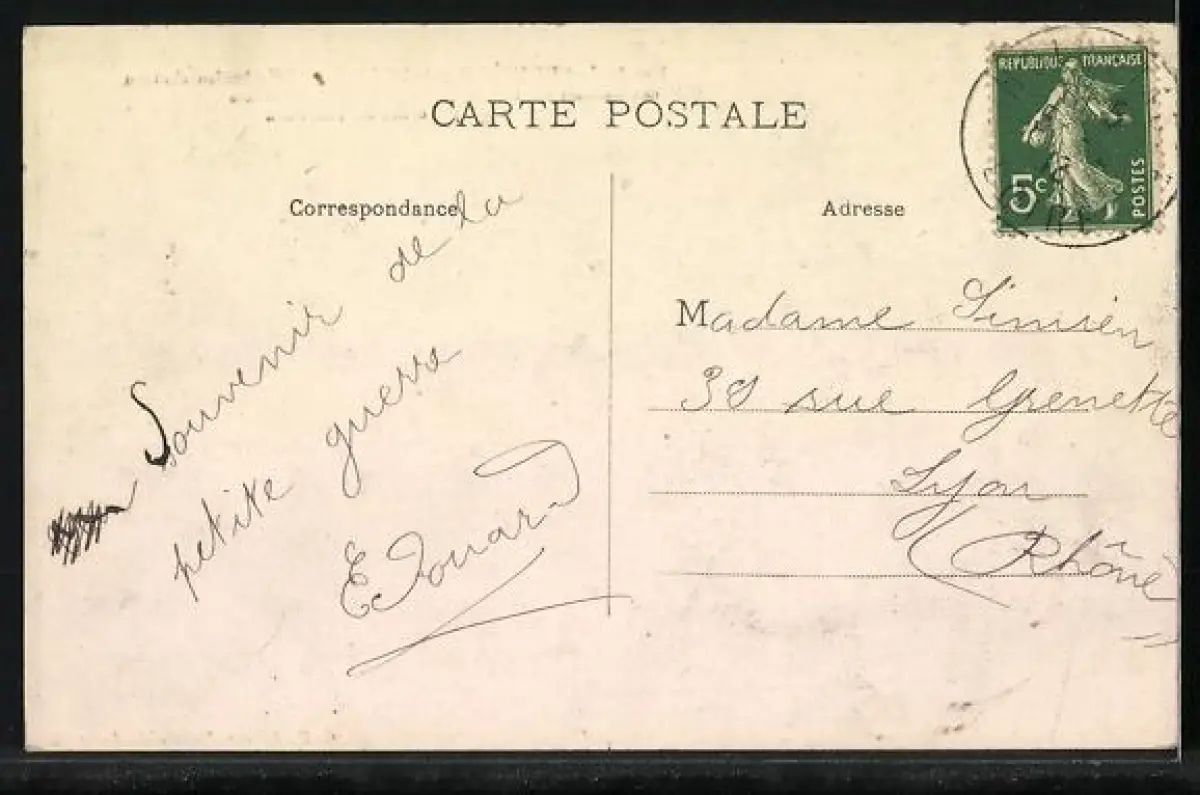 CARTE POSTALE
Correspondance
Souvenir de la
petite guerre
Edouard
Adresse
REPUBLIQUE FRANÇAISE
5c
POSTES
Madame Simien
39 rue Grenette
Lyon
(Rhône